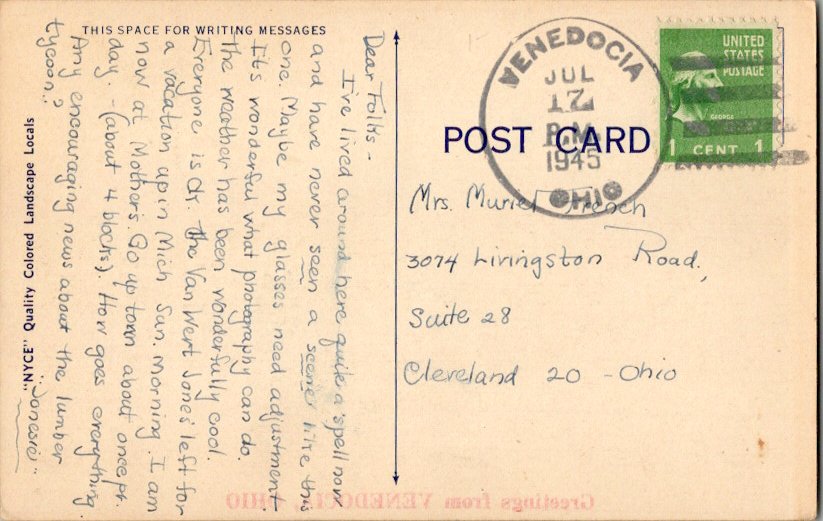 THIS SPACE FOR WRITING MESSAGES
Dear Folks -
I've lived around here quite a spell now
and have never seen a scener like this
one. Maybe my glasses need adjustment.
It's wonderful what photography can do.
The weather has been wonderfully cool.
Everyone is O.K. The Van Wert Jones' left for
a vacation up in Mich Sun. morning. I am
now at Mother's. Go up town about once pr.
day. - (about 4 blocks). How goes everything.
Any encouraging news about the lumber
tycoon?
"Jonesie"
"NYCE" Quality Colored Landscape Locals
VENEDOCIA
JUL
17
P.M.
1945
OHIO
UNITED
STATES
POSTAGE
GEORGE
1 CENT 1
POST CARD
Mrs. Muriel French
3074 Livingston Road,
Suite 28
Cleveland 20 - Ohio
Greetings from VENEDOCIA, OHIO